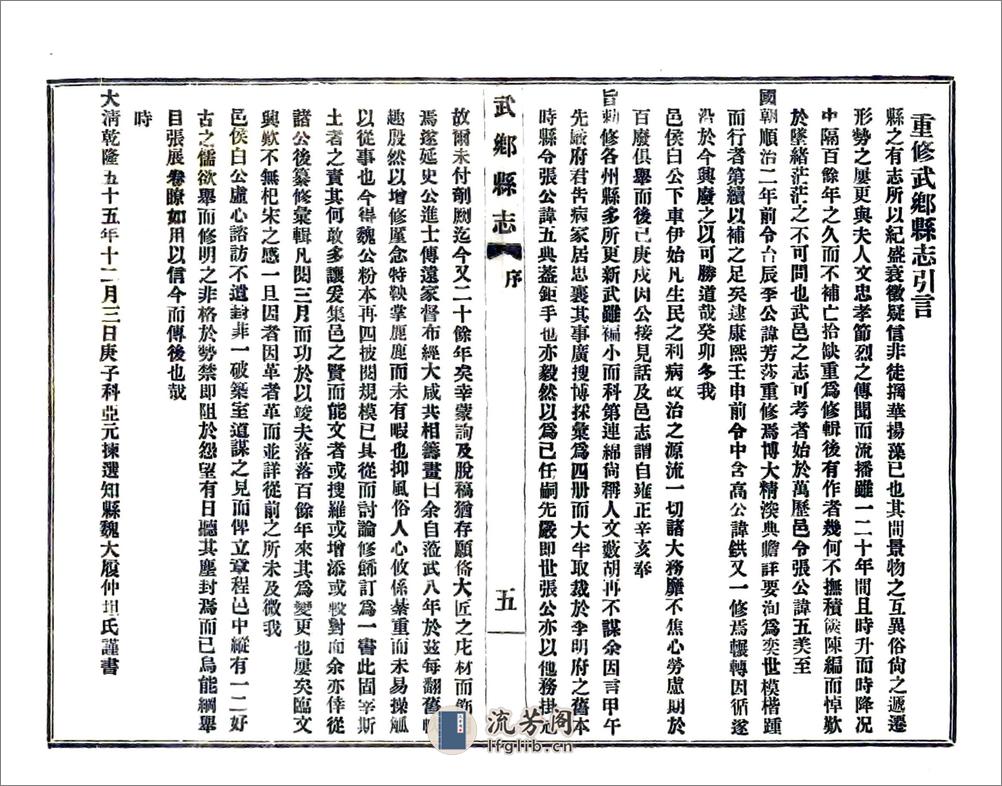 重修武鄉縣志引言
縣之有志所以紀盛衰徵疑信非徒摛華揚藻已也其間景物之互異俗尙之遞遷
形勢之屢更與夫人文忠孝節烈之傳聞而流播雖一二十年間且時升而時降况
中隔百餘年之久而不補亡拾缺重爲修輯後有作者幾何不撫積殘陳編而悼歎
於墜緒茫茫之不可問也武邑之志可考者始於萬歷邑令張公諱五美至
國朝順治二年前令台辰李公諱芳莎重修焉博大精深典贍詳要洵爲奕世模楷踵
而行者第續以補之足矣逮康熙壬申前令中含高公諱鉷又一修焉輾轉因循遂
沿於今興廢之以可勝道哉癸卯冬我
邑侯白公下車伊始凡生民之利病政治之源流一切諸大務靡不焦心勞慮期於
百廢俱舉而後已庚戌因公接見話及邑志謂自雍正辛亥奉
旨勅修各州縣多所更新武雖褊小而科第連綿尙稱人文藪胡再不謀余因言甲午
先嚴府君吿病家居思襄其事廣搜博採彙爲四册而大半取裁於李明府之舊本
時縣令張公諱五典葢鉅手也亦毅然以爲已任嗣先嚴即世張公亦以他務掛冠
武鄉縣志
序
五
故爾未付剞劂迄今又二十餘年矣幸蒙詢及脫稿猶存願俻大匠之庀材而節
焉遂延史公進士傳遠家督布經大咸共相籌畫曰余自涖武八年於茲每翻舊
趣殷然以增修廑念特鞅掌鹿鹿而未有暇也抑風俗人心攸係綦重而未易操觚
以從事也今得魏公粉本再四披閱規模已具從而討論修飾訂爲一書此固宰斯
土者之責其何敢多讓爰集邑之賢而能文者或搜羅或增添或較對而余亦倖從
諸公後纂修彙輯凡閱三月而功於以竣夫落落百餘年來其爲變更也屢矣臨文
興歎不無杞宋之感一旦因者因革者革而並詳從前之所未及微我
邑侯白公虛心諮訪不遺封非一破築室道謀之見而俾立章程邑中縱有一二好
古之儒欲舉而修明之非格於勢禁即阻於怨望有日聽其塵封焉而已烏能綱舉
目張展卷瞭如用以信今而傳後也哉
時
大淸乾隆五十五年十二月三日庚子科亞元揀選知縣魏大履仲坦氏謹書
流芳阁
lfglib.cn